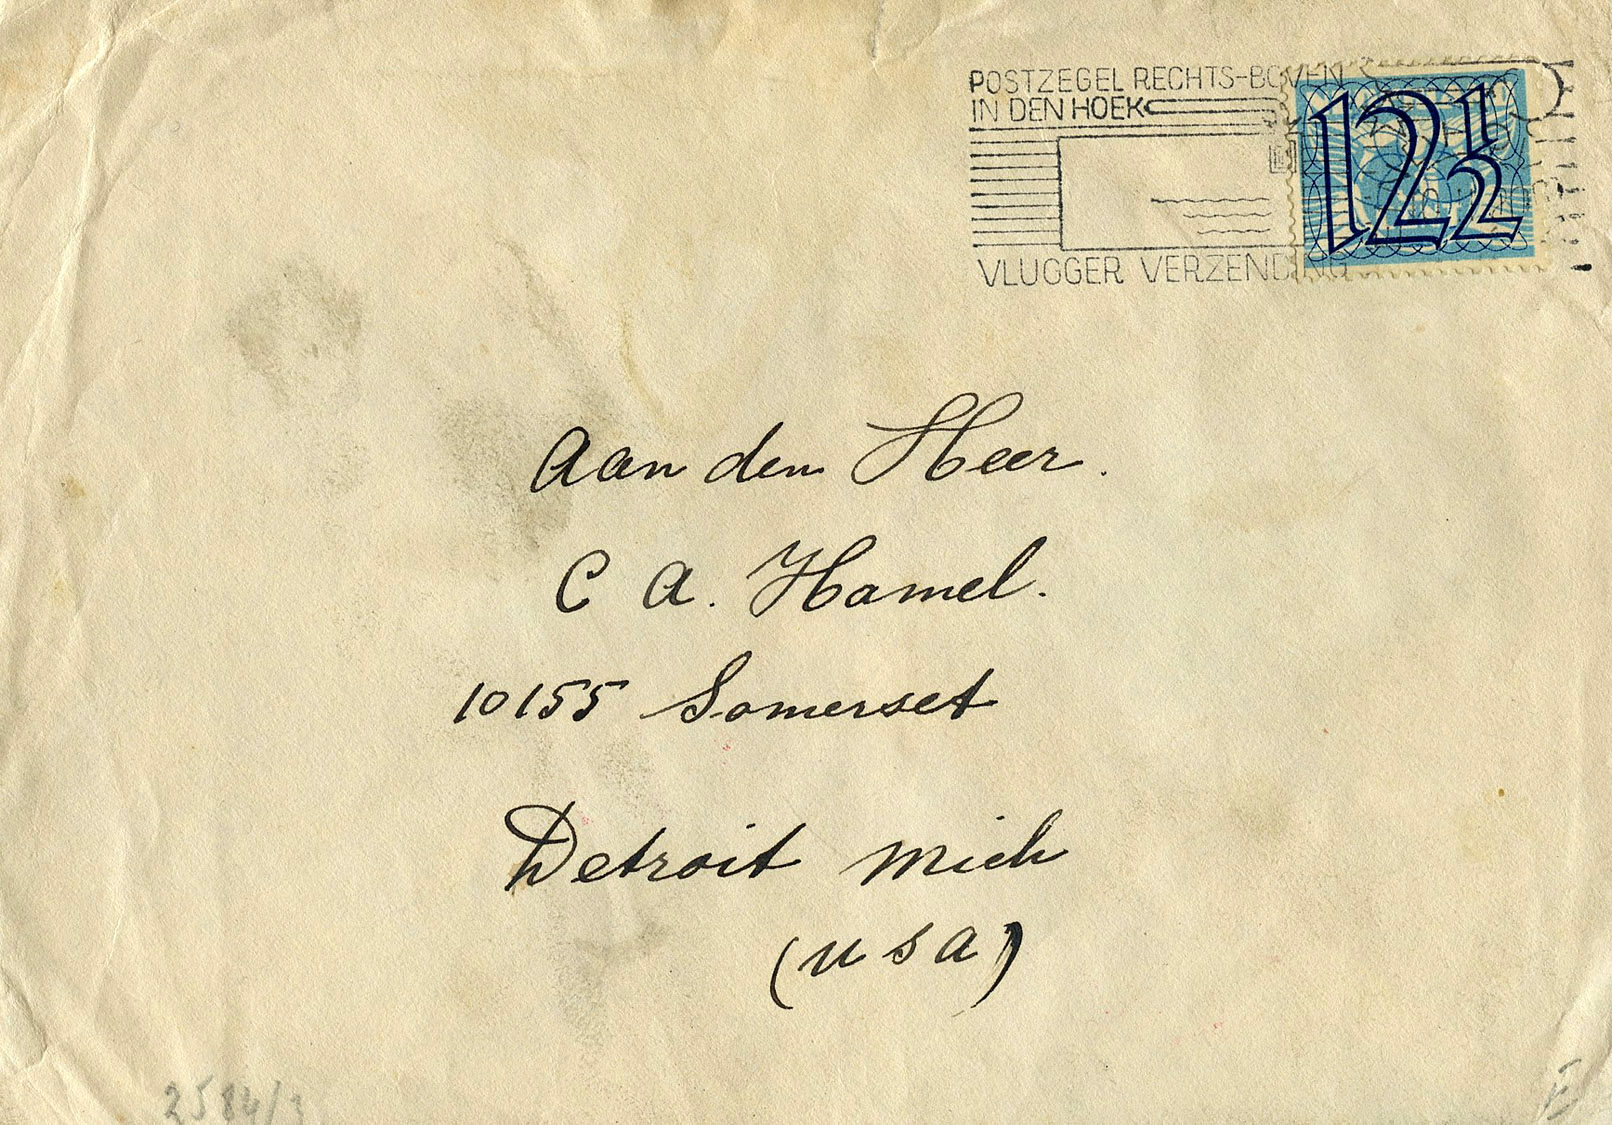 POSTZEGEL RECHTS-BOVEN
IN DEN HOEK
VLUGGER VERZENDING
12½
Aan den Heer.
C A. Hamel.
10155 Somerset
Detroit Mich
(USA)
2584/3